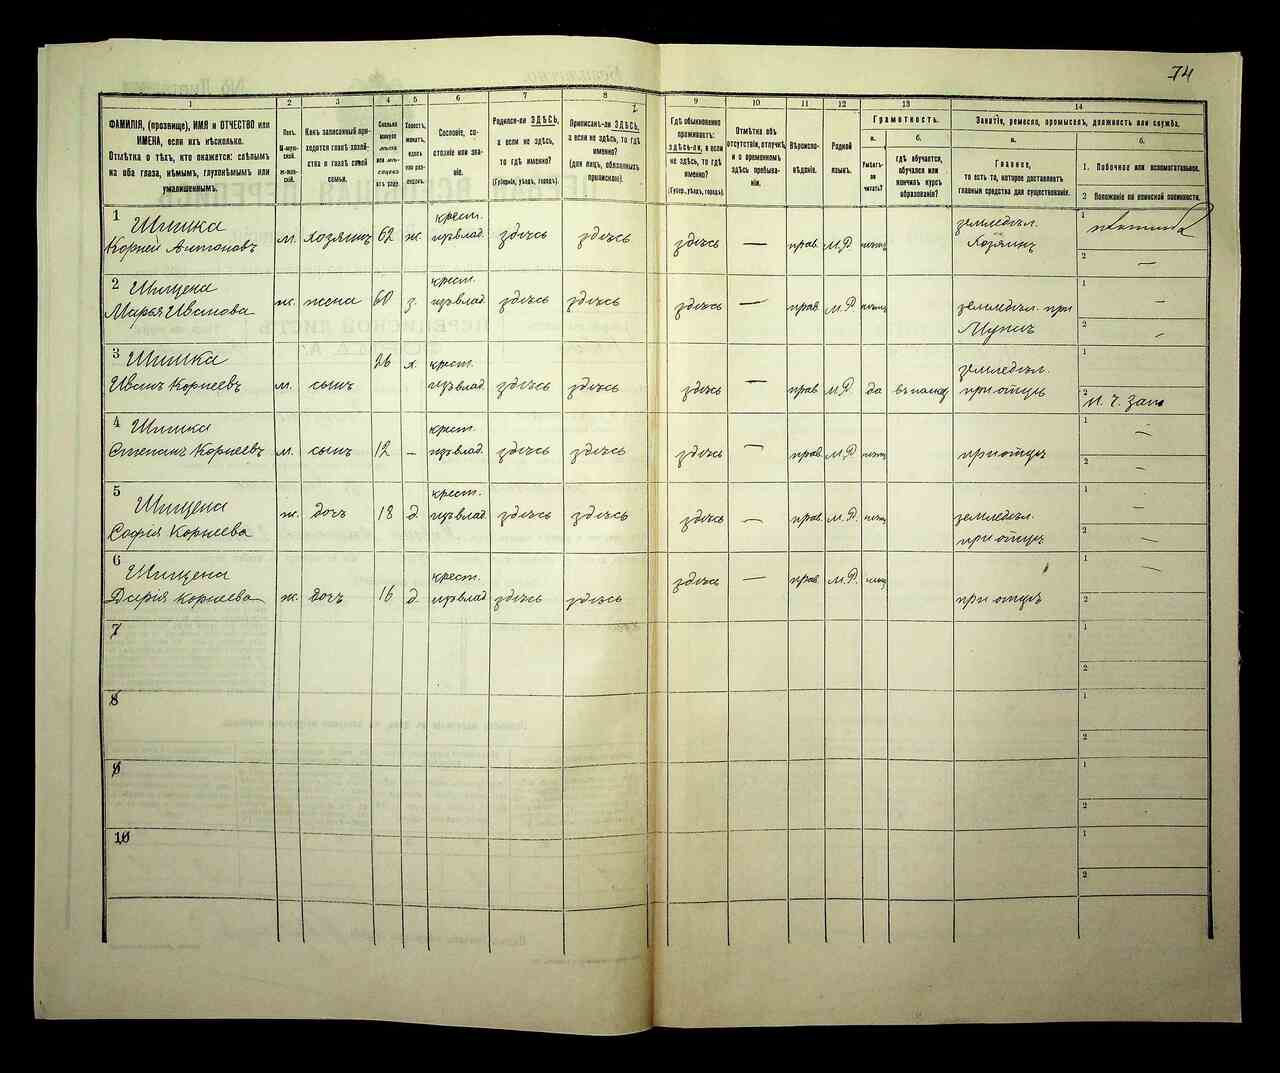 74
1 2 3 4 5 6 7 8 9 10 11 12 13 14
ФАМИЛІЯ, (прозвище), ИМЯ и ОТЧЕСТВО или
ИМЕНА, если ихъ нѣсколько.
Отмѣтка о тѣхъ, кто окажется: слѣпымъ
на оба глаза, нѣмымъ, глухонѣмымъ или
умалишеннымъ.
Полъ.
М-муж-
ской.
Ж-жен-
скій.
Какъ записанный при-
ходится главѣ хозяй-
ства и главѣ своей
семьи.
Сколько
минуло
лѣтъ
или мѣ-
сяцевъ
отъ роду.
Холостъ,
женатъ,
вдовъ
или раз-
веденъ.
Сословіе, со-
стояніе или зва-
ніе.
Родился-ли ЗДѢСЬ,
а если не здѣсь,
то гдѣ именно?
(Губернія, уѣздъ, городъ).
Приписанъ-ли ЗДѢСЬ,
а если не здѣсь, то гдѣ
именно?
(для лицъ, обязанныхъ
припискою).
Гдѣ обыкновенно
проживаетъ:
здѣсь-ли, а если
не здѣсь, то гдѣ
именно?
(Губер., уѣздъ, городъ).
Отмѣтка объ
отсутствіи, отлучкѣ
и о временномъ
здѣсь пребыва-
ніи.
Вѣроиспо-
вѣданіе.
Родной
языкъ.
Грамотность.
а.
Умѣетъ-
ли
читать?
б.
гдѣ обучается,
обучался или
кончилъ курсъ
образованія?
Занятіе, ремесло, промыселъ, должность или служба.
а.
Главное,
то есть то, которое доставляетъ
главныя средства для существованія.
б.
1. Побочное или вспомогательное.
2 Положеніе по воинской повинности.
1 Шишка крест. земледѣл. 1
Корней Антоновъ м. хозяинъ 62 ж. изъ влад. здѣсь здѣсь здѣсь — прав. М.Р. Хозяинъ
2 —
2 Шищена крест. 1 —
Марья Иванова ж. жена 60 з. изъ влад. здѣсь здѣсь здѣсь — прав. М.Р. земледѣл. при
2 —
3 Шишка 26 х. крест. земледѣл. 1
Иванъ Корнеевъ м. сынъ изъ влад. здѣсь здѣсь здѣсь — прав. М.Р. да при отцѣ
2
4 Шишка крест. 1 —
Степанъ Корнеевъ м. сынъ 12 — изъ влад. здѣсь здѣсь здѣсь — прав. М.Р. при отцѣ
2 —
5 Шищена крест. 1 —
ж. дочь 18 д. изъ влад. здѣсь здѣсь здѣсь — прав. М.Р. земледѣл.
Софія Корнеева при отцѣ 2 —
6 Шищена крест. здѣсь — прав. М.Р. 1 —
Дарія Корнеева ж. дочь 16 д. изъ влад. здѣсь здѣсь при отцѣ 2
7 1
2
8 1
2
9 1
2
10 1
2